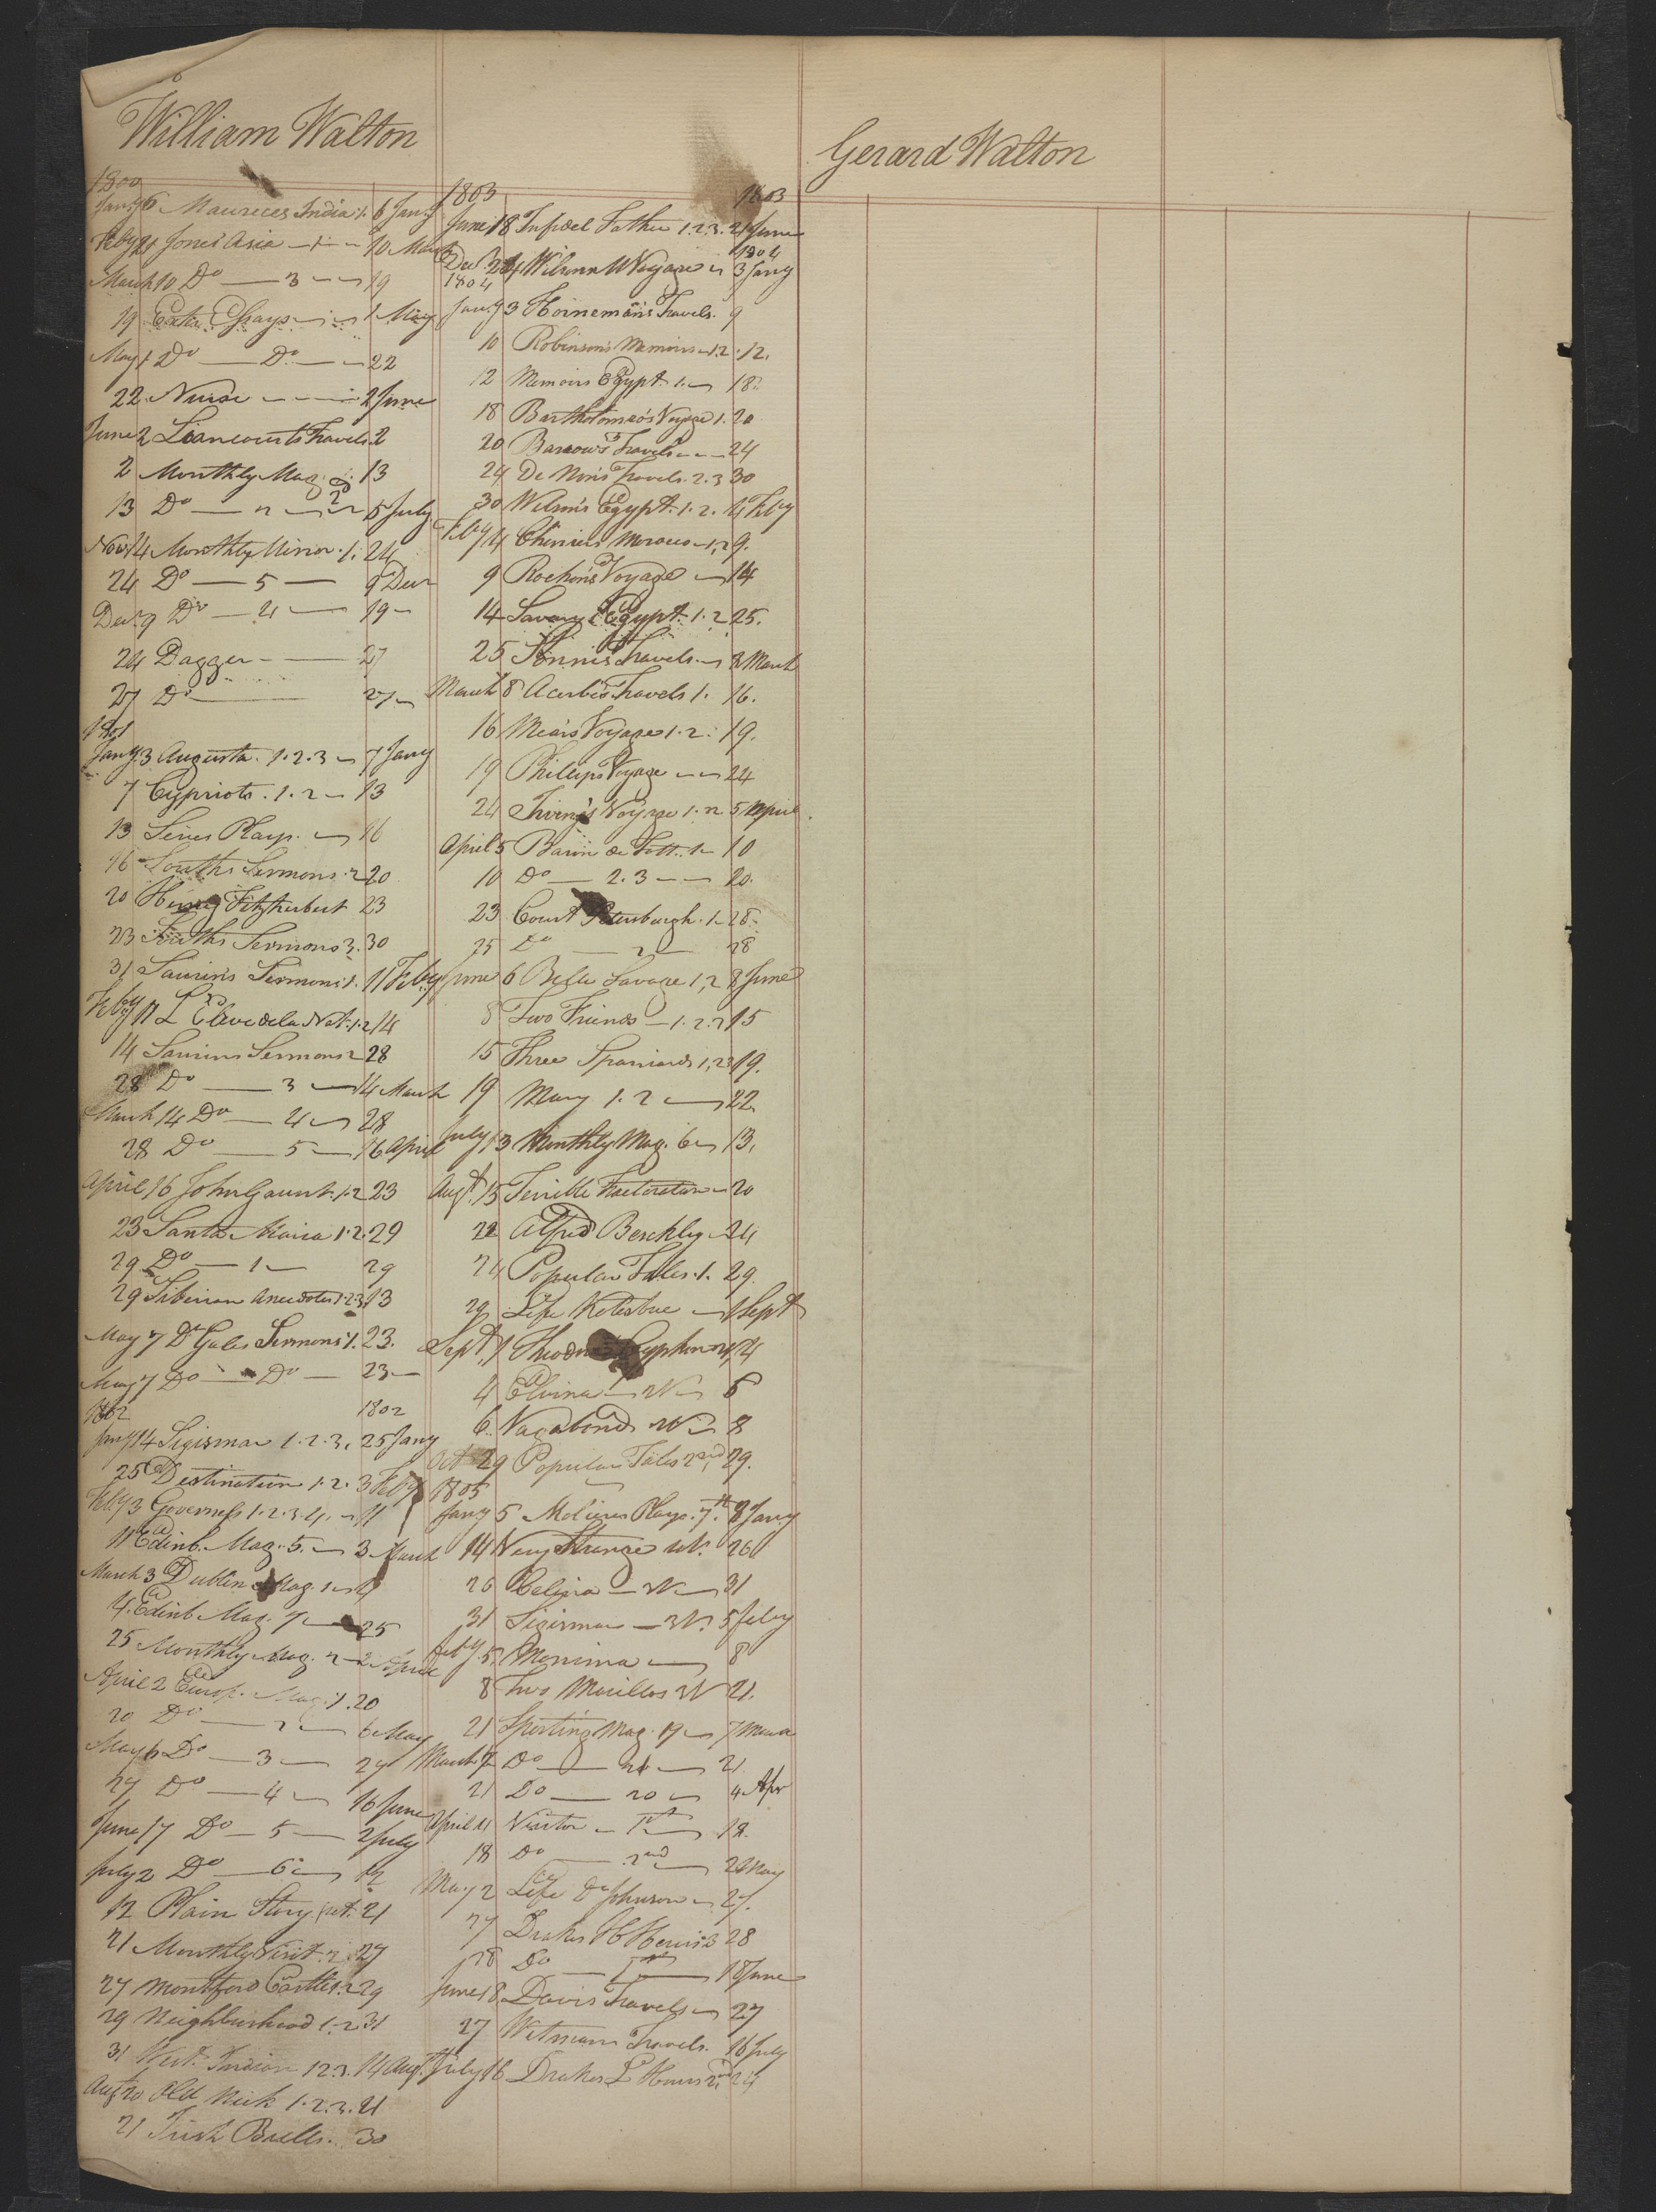 William Walton
1800
Jany 6 Maurices India 1. 6 Jany
Feby 21 Jones Asia — 1 — 10 March
March 10 Do — 3 — 19
19 Exetr Essays — 1 May
May 1 Do — Do — 22
22 Nurse — 2 June
June 2 Liancourts Travels 2
2 Monthly Mag. 13
13 Do — 2 — 5 July
Novr 14 Monthly Mirror. 1. 24
24 Do — 5 — 9 Decr
Decr 9 Do — 4 — 19
24 Dagger — 27
27 Do — 27
1801
Jany 3 Augusta. 1.2.3 — 7 Jany
7 Cypriots. 1.2 — 13
13 Series Plays. — 16
16 Souths Sermons. 2 20
20 Henry Fitzherbert 23
23 Souths Sermons 3. 30
31 Saurin's Sermons 1. 11 Feby
Feby 11 L Eleve de la Nat. 1.2 14
14 Saurins Sermons 2 28
28 Do — 3 — 14 March
March 14 Do — 4 — 28
28 Do — 5 — 16 April
April 16 John Gaunt. 1.2 23
23 Santa Maria 1.2. 29
29 Do — 1 — 29
29 Siberian Anecdotes 1.2.3 13
May 7 Dr Gales Sermons 1. 23.
May 7 Do — Do — 23 —
1802 1802
Jany 14 Sigismar 1.2.3. 25 Jany
25 Destination 1.2. 3 Feby
Feby 3 Governess 1.2.3.4. — 11
11 Edinb. Mag. 5. — 3 March
March 3 Dublin Mag. 1 — 4
4. Edinb. Mag. 7 — 25
25 Monthly Mag. 2 — 2 April
April 2 Europ. Mag. 1. 20
20 Do — 2 — 6 May
May 6 Do — 3 — 27
27 Do — 4 — 16 June
June 17 Do — 5 — 2 July
July 2 Do — 6 — 12
12 Plain Story 21
21 Monthly Visit. 2 27
27 Montford Castle 1.2 29
29 Neighburhood 1.2 31
31 West Indian 1 2.3. 14 Augt.
Augt 20 Old Nick 1.2.3. 21
21 Irish Bulls. 30
1803 1803
June 18 Infidel Father 1.2.3. 21 June
1804
Decr 24 Wilsons Voyage 3 Jany
1804
Jany 3 Hornemans Travels. 9
10 Robinsons Memoirs 1.2 12.
12 Memoirs Egypt. 1. — 18.
18 Bartholomeo's Voyage 1. 20
20 Barrows Travels — 24
24 De Non's Travels. 2.3 30
30 Wilson's Egypt. 1.2. 4 Feby
Feby 4 Cheniers Morocco 1,2 9.
9 Rochon's Voyage — 14
14 Savary's Egypt. 1.2 25.
25 Sonnis Travels. — 8 March
March 8 Acerbis Travels 1. 16.
16 Mears Voyage 1.2. 19.
19 Phillips Voyage — 24
24 Thring's Voyage 1.2. 5 April.
April 5 Baron de Tott. 1 — 10
10 Do — 2.3 — 20.
23 Court Petersburgh. 1 — 28.
25 Do — 2 — 28
June 6 Belle Savage 1,2 8 June
8 Two Friends — 1.2.3 15
15 Three Spaniards 1,2.3 19.
19 Mary 1.2 — 22.
July 13 Monthly Mag. 6 — 13.
Augt. 15 Terrible Tractoration — 20
22 Alfred Berckley — 24
24 Popular Tales. 1. 29.
29 Life Kotzebue — 1 Sept
Sept. 1 Theodore Cyphon 4
4 Elvina — 6
6. Vagabond — 8
Oct 29 Popular Tales 2nd, 29.
1805
Jany 5 Molieres Plays. 7th 8 Jany
14 Very Strange 26
26 Celina — 31
31 Sigismar — 5 Feby
Feby. 5, Monima — 8
8 Two Marillos 21.
21 Sporting Mag. 19 — 7 March
March 7 Do — 21.
21 Do — 20 — 4 Apr
April 11 Visitor — 1st — 18.
18 Do — 2nd — 2 May
May 2 Life Dr Johnson — 27.
27 Drakes L Hours 3 28
28 Do — 1st — 18 June
June 18 Davis Travels — 27
27 Witmans Travels. 16 July
July 16 Drakes L Hours 2nd, 24
Gerard Walton